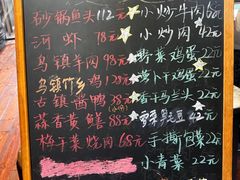 砂锅鱼头112元
河虾 78元
乌镇羊肉98元
乌镇竹乡鸡128元
古镇酱鸭38元
蒜香黄鳝88元
梅干菜烧肉68元
小炒牛肉62元
小炒肉42元
野菜鸡蛋22元
萝卜干炒鸡蛋22元
香干马兰头22元
雪菜 豆42元
手撕包菜22元
小青菜22元